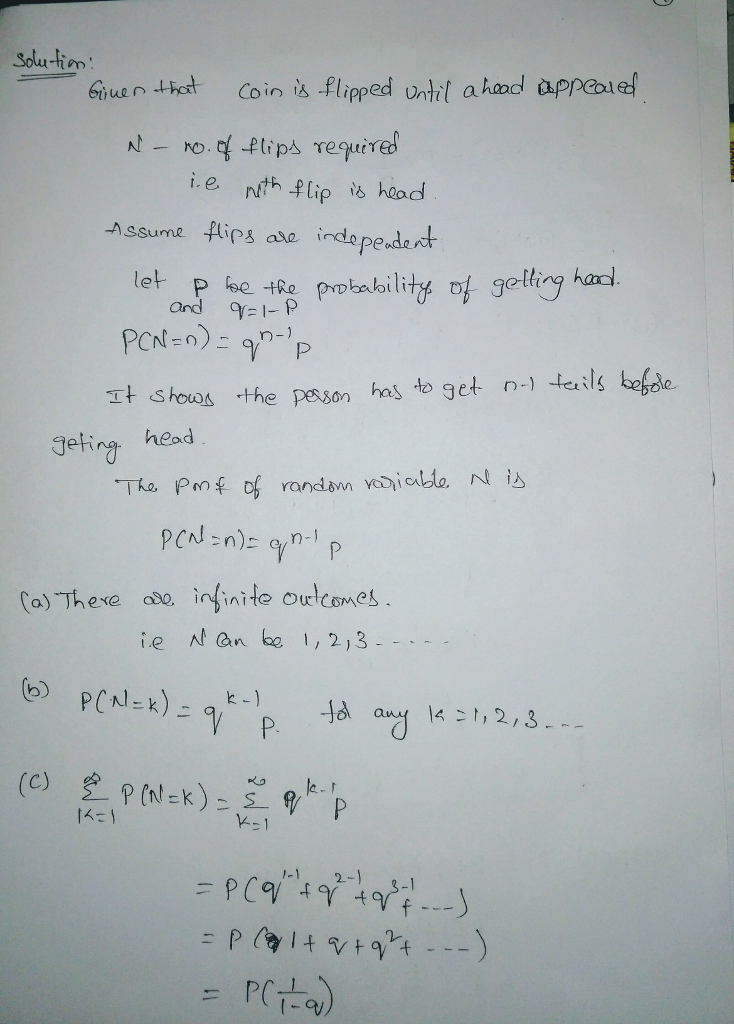 Solution:
Given that coin is flipped until a head appeared.
N – no. of flips required
i.e Nth flip is head.
Assume flips are independent
let p be the probability of getting head.
and q=1-p
P(N=n) = q^{n-1} p
It shows the person has to get n-1 tails before
geting head.
The pmf of random variable N is
P(N=n) = q^{n-1} p
(a) There are infinite outcomes.
i.e N can be 1, 2, 3 - - - - -
(b) P(N=k) = q^{k-1} p. for any k = 1, 2, 3 - - -
(c) ∑_{k=1}^{∞} P(N=k) = ∑_{k=1}^{∞} q^{k-1} p
= P(q^{1-1} + q^{2-1} + q^{3-1} + - - -)
= P(1 + q + q^2 + - - -)
= P(1/(1-q))